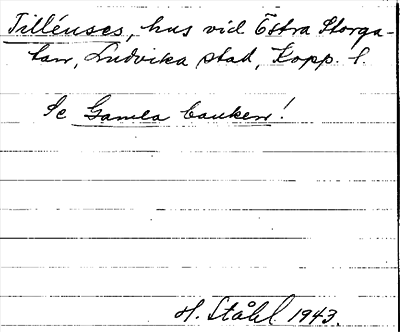 Tilléuses, hus vid Östra Storga-
tan, Ludvika stad, Kopp. l.
Se Gamla banken!
H. Ståhl 1943.